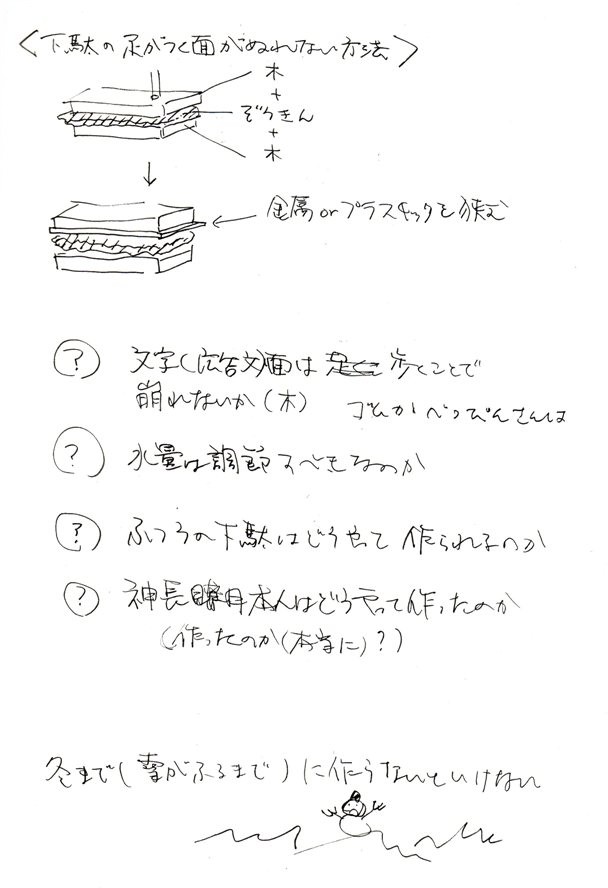 <下駄の足がつく面がぬれない方法>
木
+
ぞうきん
+
木
金属orプラスチックを挟む
? 文字(広告文)面は 歩くことで
崩れないか(木) ゴムかべっぴんさんは
? 水量は調節すべきなのか
? ふつうの下駄はどうやって作られるのか
? 神長 本人はどうやって作ったのか
(作ったのか(本当に)?)
冬まで(雪がふるまで)に作らないといけない